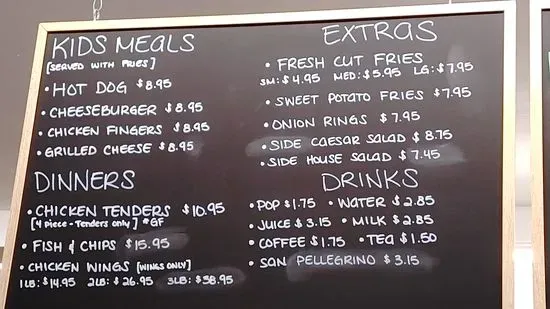 KIDS MEALS
[SERVED WITH FRIES]
• HOT DOG $8.95
• CHEESEBURGER $8.95
• CHICKEN FINGERS $8.95
• GRILLED CHEESE $8.95
DINNERS
• CHICKEN TENDERS $10.95
[4 PIECE - TENDERS ONLY] *GF
• FISH & CHIPS $15.95
• CHICKEN WINGS [WINGS ONLY]
1LB: $14.95 2LB: $26.95 3LB: $38.95
EXTRAS
• FRESH CUT FRIES
SM: $4.95 MED: $5.95 LG: $7.95
• SWEET POTATO FRIES $7.95
• ONION RINGS $7.95
• SIDE CAESAR SALAD $8.75
• SIDE HOUSE SALAD $7.45
DRINKS
• POP $1.75 • WATER $2.85
• JUICE $3.15 • MILK $2.85
• COFFEE $1.75 • TEA $1.50
• SAN PELLEGRINO $3.15